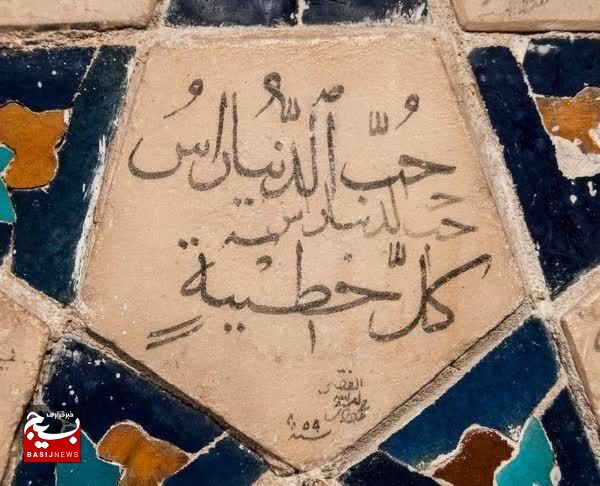 حُبّ الدّنیا راسُ
حب الدنیا راس
کلّ خطیبةٍ
الفقیر
سنه ٨٥٩
خبرگزاری
بسیج
BASIJNEWS